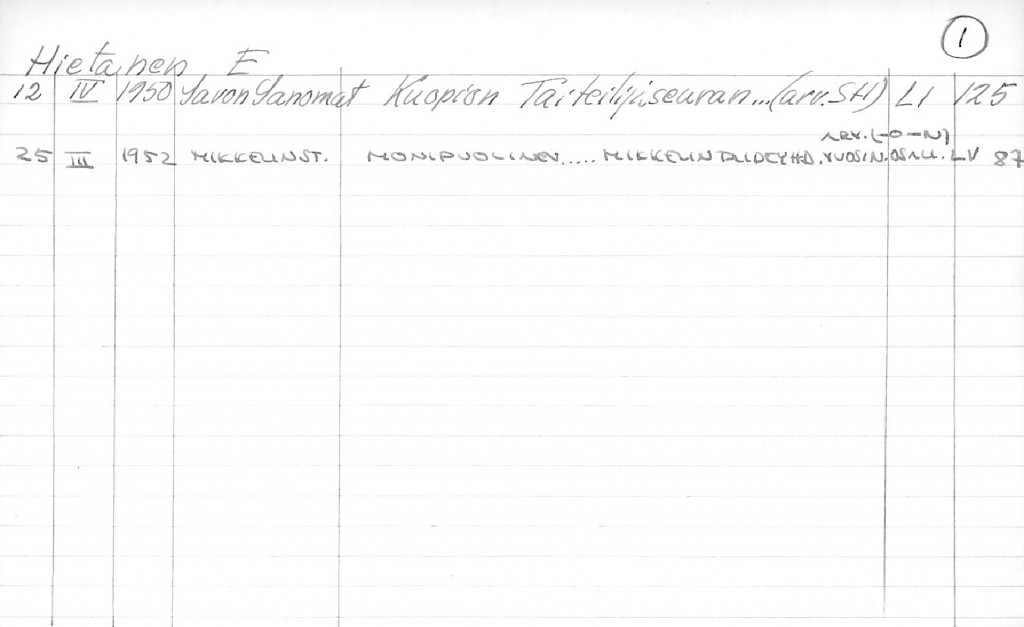 1
Hietanen E
12 IV 1950 Savon Sanomat Kuopion Taiteilijaseuran...(arv.SH) LI 125
ARV.(-O-N)
25 III 1952 MIKKELIN ST. MONIPUOLINEN..... MIKKELIN TAIDEYHD. VUOSIN. OSALL. LV 87